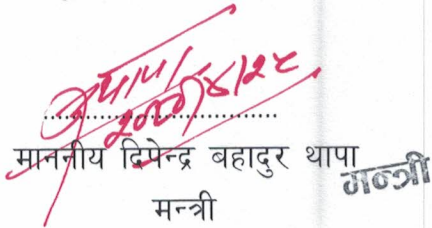 थापा
..............................
माननीय दिपेन्द्र बहादुर थापा
मन्त्री
मन्त्री